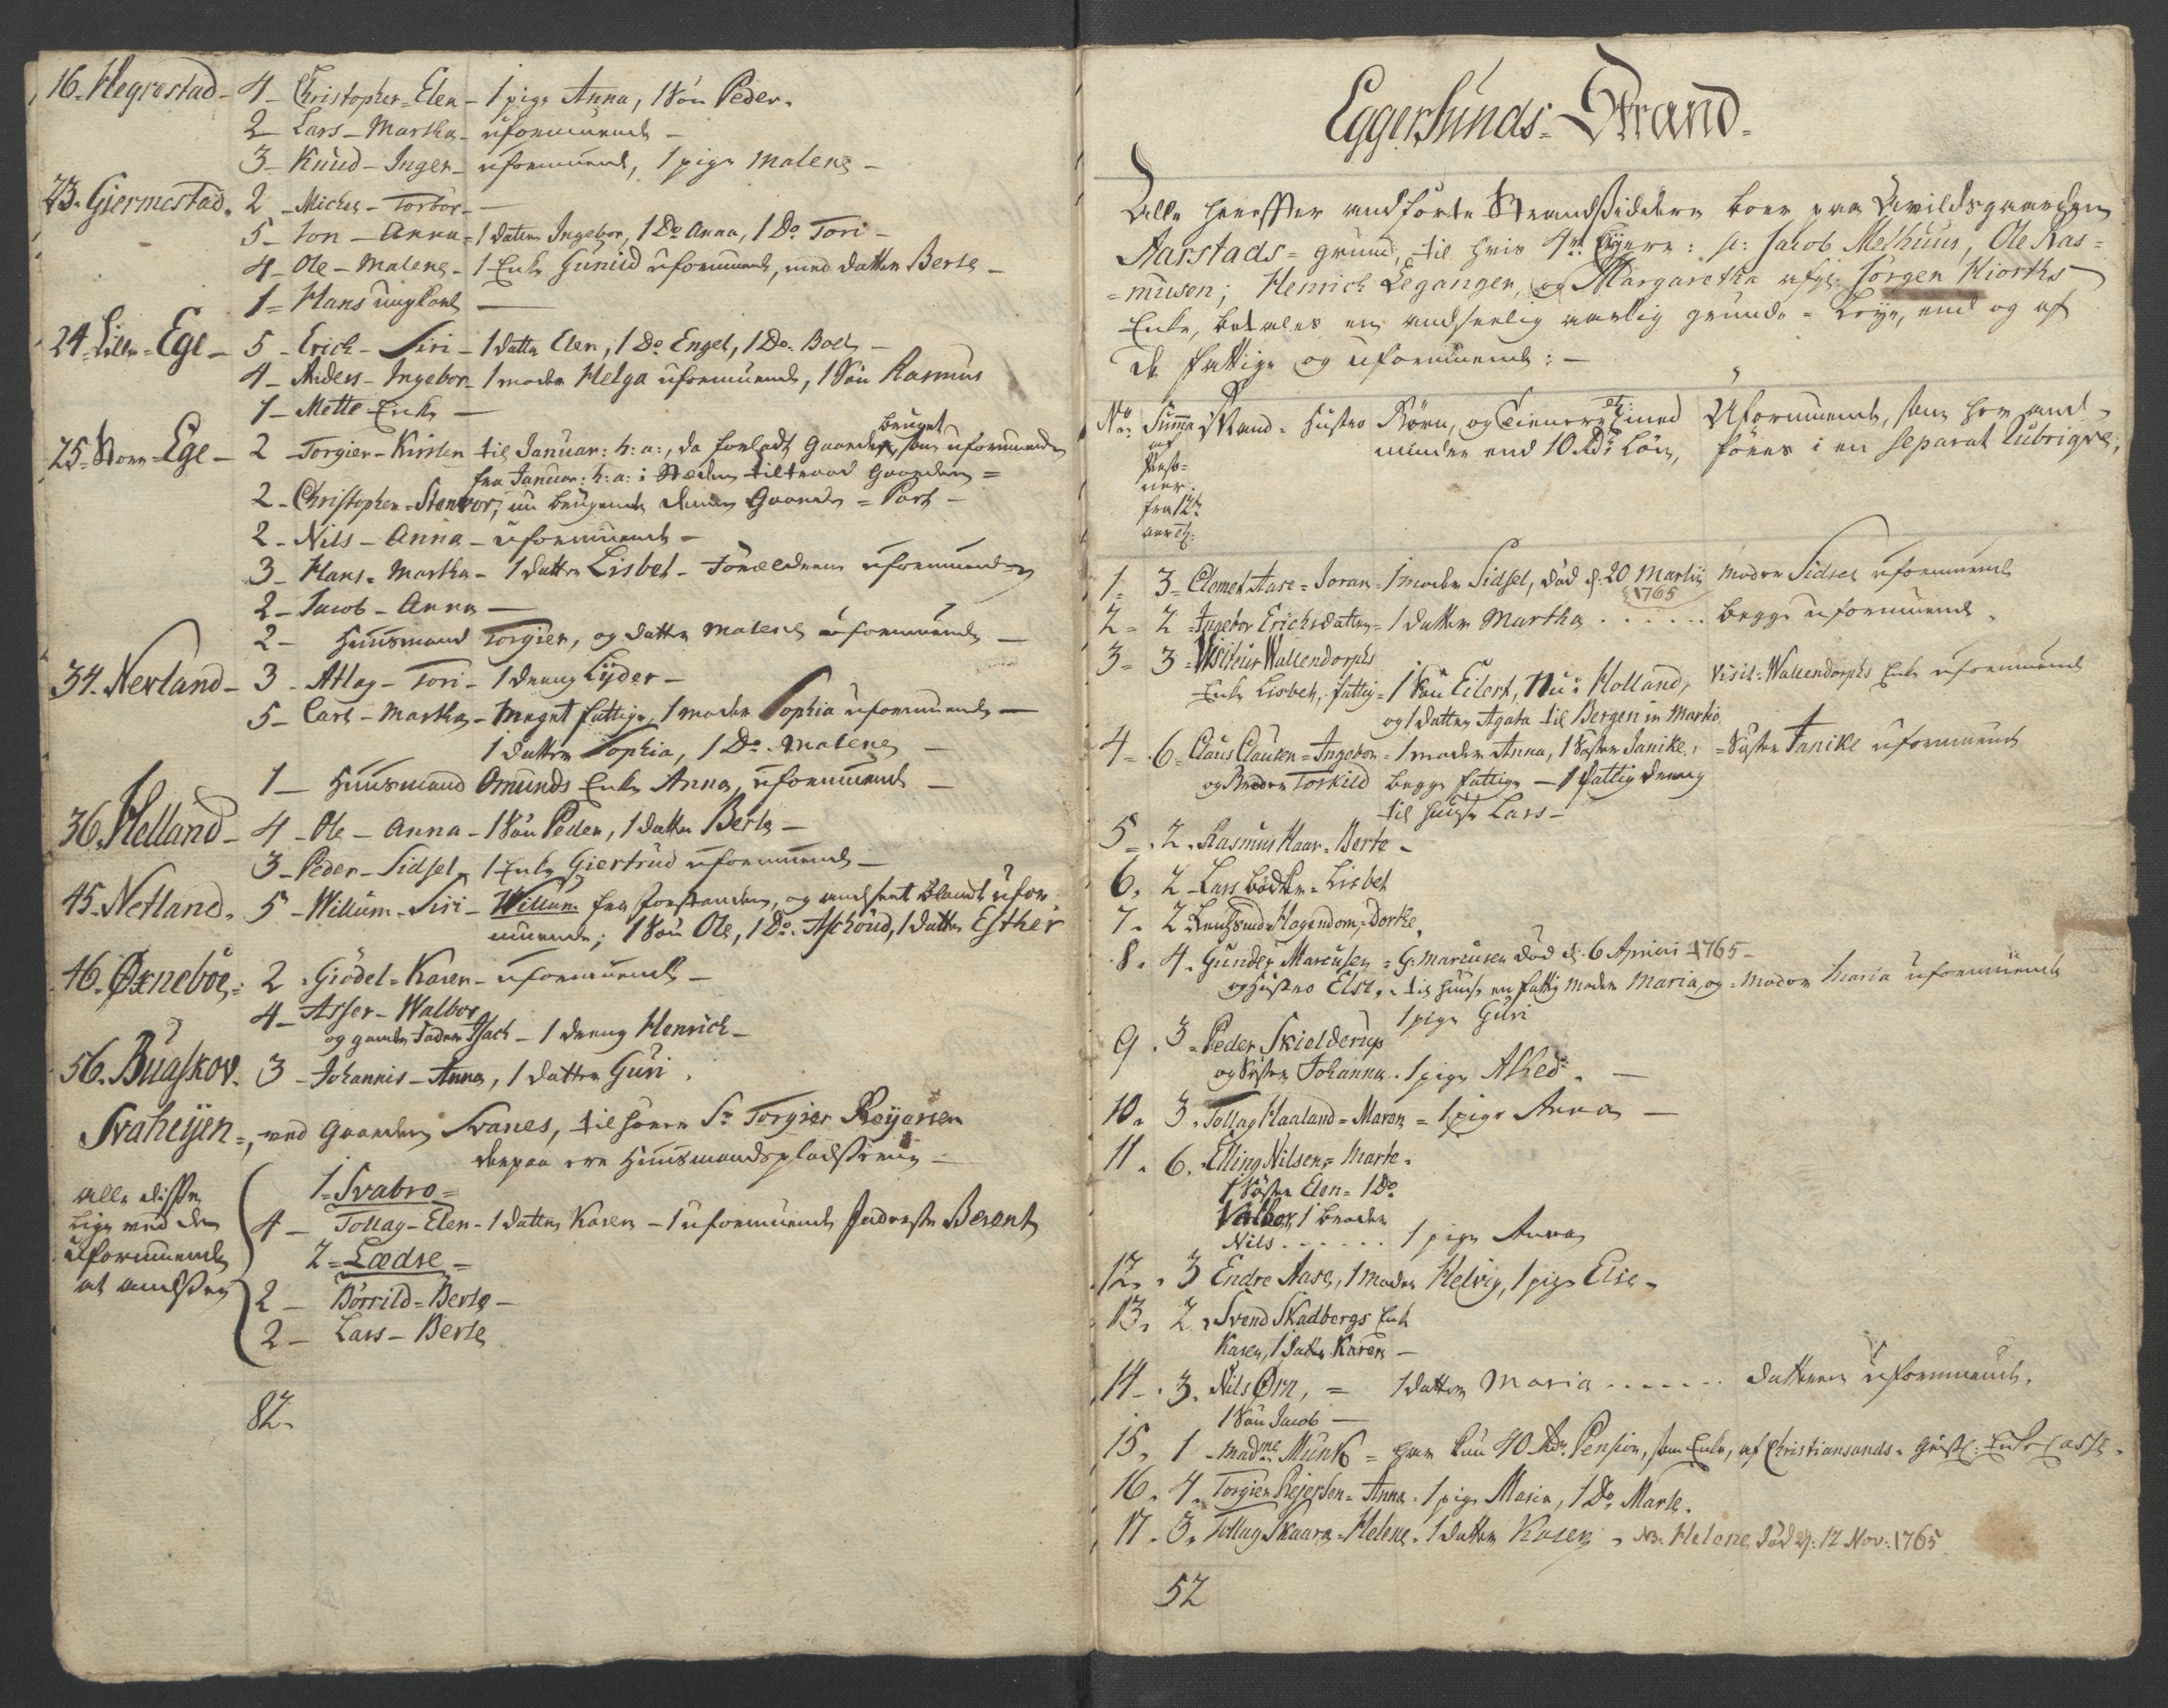 16. Hegrestad - 4 - Christopher = Elen - 1 pige Anna, 1 Søn Peder.
2 - Lars - Martha - uformuende -
3 - Knud - Inger - uformuende, 1 pige Malene -
23. Giermestad. 2 - Michel - Torbor -
5 - Jon - Anna = 1 datter Ingebor, 1 Do Anna, 1 Do Tori -
4 - Ole - Malene - 1 Enke Gunild uformuende, med datter Berte -
1 = Hans ungkarl -
24. Lille = Ege - 5 - Erich - Siri - 1 datter Elen, 1 Do Engel, 1 Do Boel -
4 - Anders - Ingebor - 1 moder Helga uformuende, 1 Søn Rasmus
1 - Mette Enke -
25. Store = Ege - 2 - Torgier - Kirsten til Januar: h: a:, da forladt Gaardens bruget, som uformuende
fra Januar: h: a: i Steden tiltraad Gaarden =
2 - Christopher = Stenvor, nu brugende denne Gaards = Part -
2 - Nils - Anna - uformuende -
3 - Hans = Martha - 1 datter Lisbet - Forældrene uformuende
2 - Jacob - Anna -
2 - Huusmand Torgier, og datter Malene uformuende -
34. Nerland - 3 - Atlag - Tori - 1 dreng Lyder -
5 - Carl - Martha - Meget fattige, 1 moder Sophia uformuende -
1 datter Sophia, 1 Do Malene -
1 - Huusmand Omunds Enke Anna, uformuende -
36. Helland - 4 - Ole - Anna - 1 Søn Peder, 1 datter Berte -
3 - Peder - Sidsel - 1 Enke Giertrud uformuende -
45. Netland. 5 - Willum - Siri - Willum fra Forstanden, og andseet blandt ufor-
muende; 1 Søn Ole, 1 Do Aschoud, 1 datter Esther
46. Øxneboe = 2 - Giødel = Karen - uformuende -
4 - Asser - Walbor
og gamle Fader Isach - 1 dreng Henrich -
56. Buaskov. 3 - Johannis - Anna, 1 datter Guri.
Svaheijen =, ved Gaarden Svanes, tilhører Sr Torgier Reijersen
derpaa ere Huusmandspladserne -
alle disse
lige med de
uformuende
at andsees
1 = Svabro =
4 - Tollag - Elen - 1 datter Karen - 1 uformuende Inderste Berent
2 = Lædre =
2 - Børrild = Berte -
2 - Lars - Berte
82.
Eggersunds = Strand.
Alle herefter andførte Strandsiddere boer paa Qvildsgaarden
Aarstads = grund, til hvis 4re Eyere: Sr: Jacob Melhuus, Ole Ras=
=musen; Henrich Legangen, og Margaretha afg: Jørgen Kiorths
Enke, betales en andseelig aarlig grunde = Leye, end og af
de fattige og uformuende: -
No: Summa af Personer fra 12te aar etc:
Mand = Hustro
Børn, og Tienere etc: med
minder end 10 Rdr Løn,
Uformuende, som her and-
føres i en separat Rubrique,
1 = 3 - Clemet Aase = Joran = 1 moder Sidsel, død d: 20 Martij 1765 Moder Sidsel uformuende
2 = 2 = Ingebor Erichsdatter = 1 datter Martha . . . . . . begge uformuende.
3 = 3 = Visiteur Wallendorphs
Enke Lisbeth, fattig = 1 Søn Eilert, nu i Holland, Visit: Wallendorphs Enke uformuende
og 1 datter Agata til Bergen in Martio
4 = 6 = Claus Clausen = Ingebor = 1 moder Anna, 1 Søster Janike, = Søster Janike uformuende
og Broder Torkild begge fattige - 1 fattig dreng
til huuse Lars -
5 = 2. Rasmus Haar = Berte -
6. 2 - Lars Bødker = Lisbet
7. 2 Hagendorn = Dorthe.
8. 4. Gunder Marcusen = G: Marcusen død d: 6 Aprili 1765 -
og Hustro Else, = til huuse en fattig moder Maria, og = Moder Maria uformuende
1 pige Guri
9. 3 = Peder Skielderup
og Søster Johanna. 1 pige Alhed. -
10. 3. Tollag Haaland = Maren = 1 pige Anna -
11. 6. Elling Nilsen = Marte.
1 Søster Elen = 1 Do
Valbor, 1 broder
Nils . . . . . . 1 pige Anna
12. 3 Endre Aase, 1 moder Helvig, 1 pige Else -
13. 2. Svend Skadbergs Enke
Karen, 1 datter Karen -
14 - 3. Nils Ørn, = 1 datter Maria . . . . . . datteren uformuende.
1 Søn Jacob -
15. 1 - Madme Munk = har kun 40 Rdr Pension, som Enke, af Christiansands Enke Casse.
16. 4. Torgier Reijersen = Anna - 1 pige Maria, 1 Do Marte.
17. 3. Tollag Skaara = Helene. 1 datter Karen - NB. Helene død d: 12 Nov: 1765
52